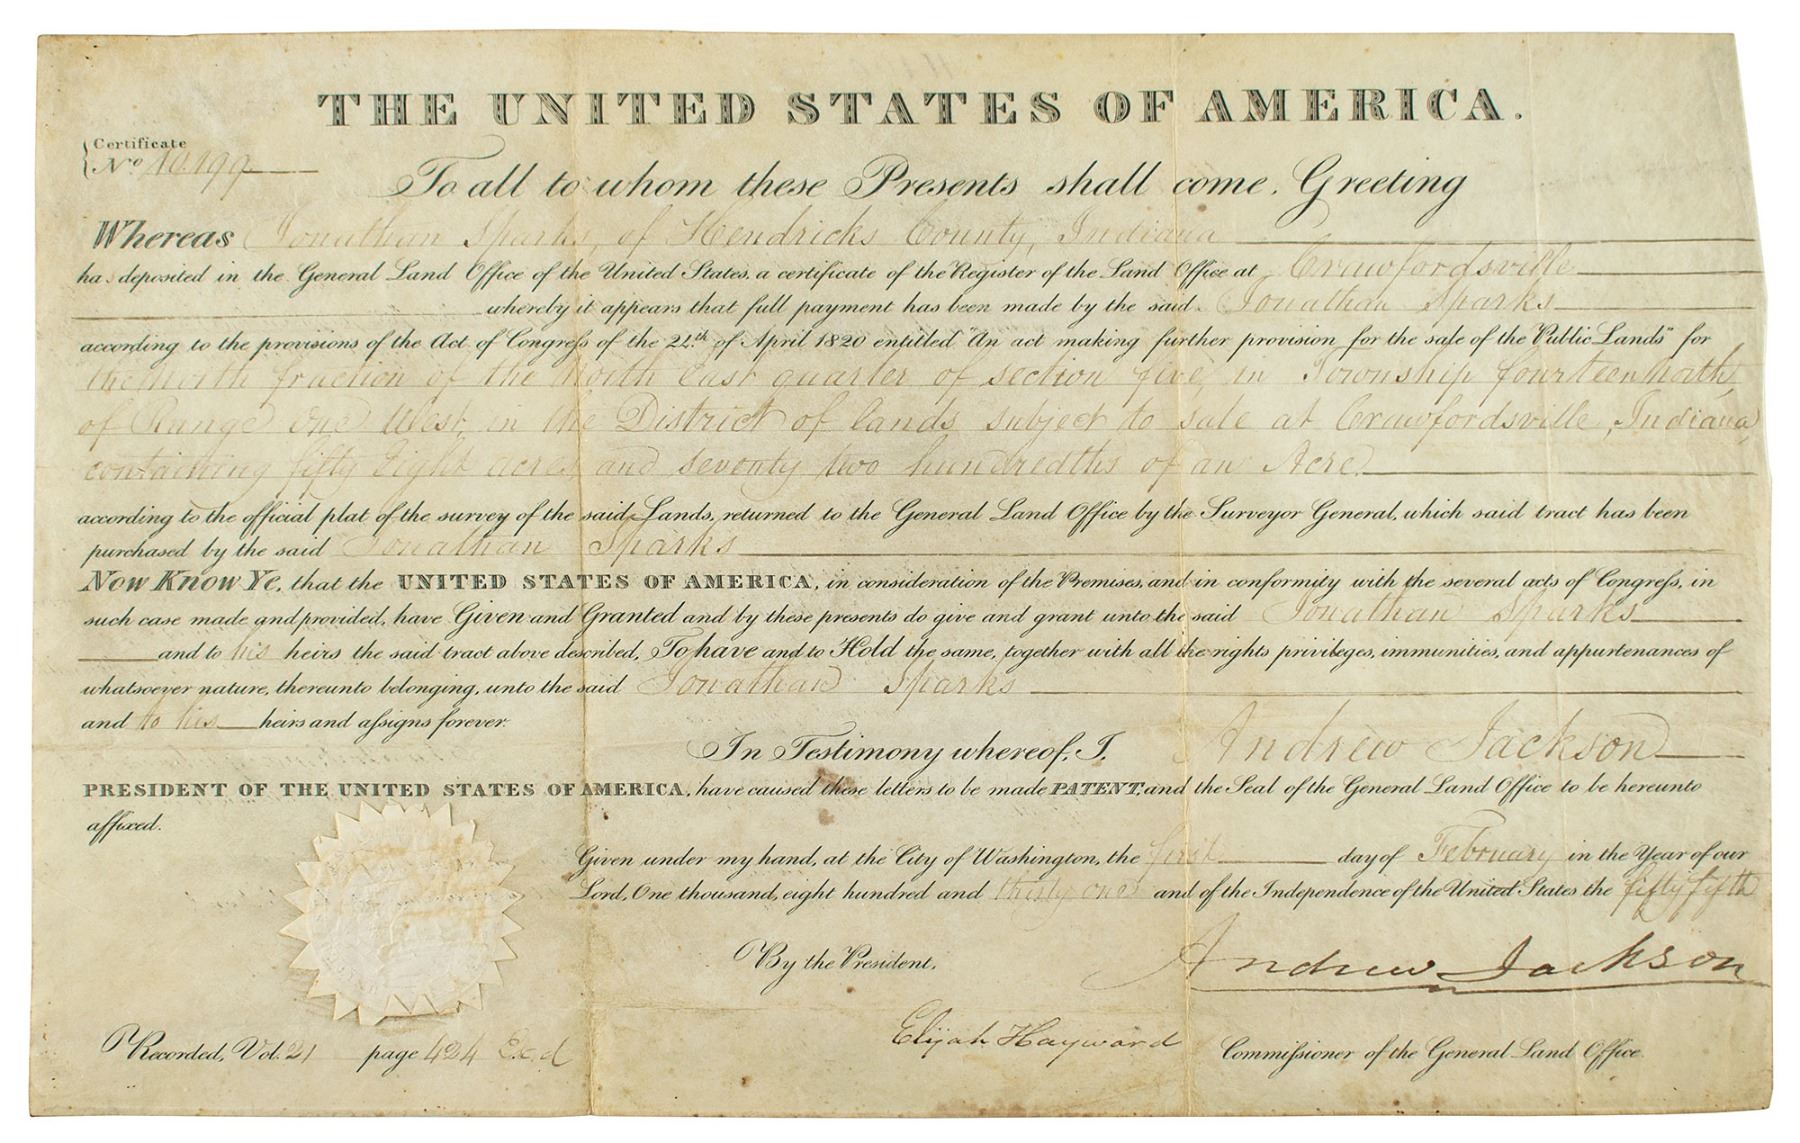 THE UNITED STATES OF AMERICA.
Certificate
No 10.199
To all to whom these Presents shall come, Greeting
Whereas Jonathan Sparks of Hendricks County, Indiana
has deposited in the General Land Office of the United States, a certificate of the Register of the Land Office at Crawfordsville
whereby it appears that full payment has been made by the said Jonathan Sparks
according to the provisions of the Act of Congress of the 24th of April 1820 entitled "An act making further provision for the sale of the Public Lands" for
the North fraction of the North East quarter of section five, in Township fourteen North,
of Range One West, in the District of lands subject to sale at Crawfordsville, Indiana,
containing fifty eight acres, and seventy two hundredths of an Acre
according to the official plat of the survey of the said Lands, returned to the General Land Office by the Surveyor General, which said tract has been
purchased by the said Jonathan Sparks
Now Know Ye, that the UNITED STATES OF AMERICA, in consideration of the Premises, and in conformity with the several acts of Congress, in
such case made and provided, have Given and Granted and by these presents do give and grant unto the said Jonathan Sparks
and to his heirs the said tract above described, To have and to Hold the same, together with all the rights privileges, immunities, and appurtenances of
whatsoever nature, thereunto belonging, unto the said Jonathan Sparks
and to his heirs and assigns forever.
In Testimony whereof, I, Andrew Jackson
PRESIDENT OF THE UNITED STATES OF AMERICA, have caused these letters to be made PATENT, and the Seal of the General Land Office to be hereunto
affixed.
Given under my hand, at the City of Washington, the first day of February in the Year of our
Lord, One thousand, eight hundred and thirty one and of the Independence of the United States the fifty fifth
By the President, Andrew Jackson
Elijah Hayward Commissioner of the General Land Office
Recorded, Vol. 21 page 424 Exd